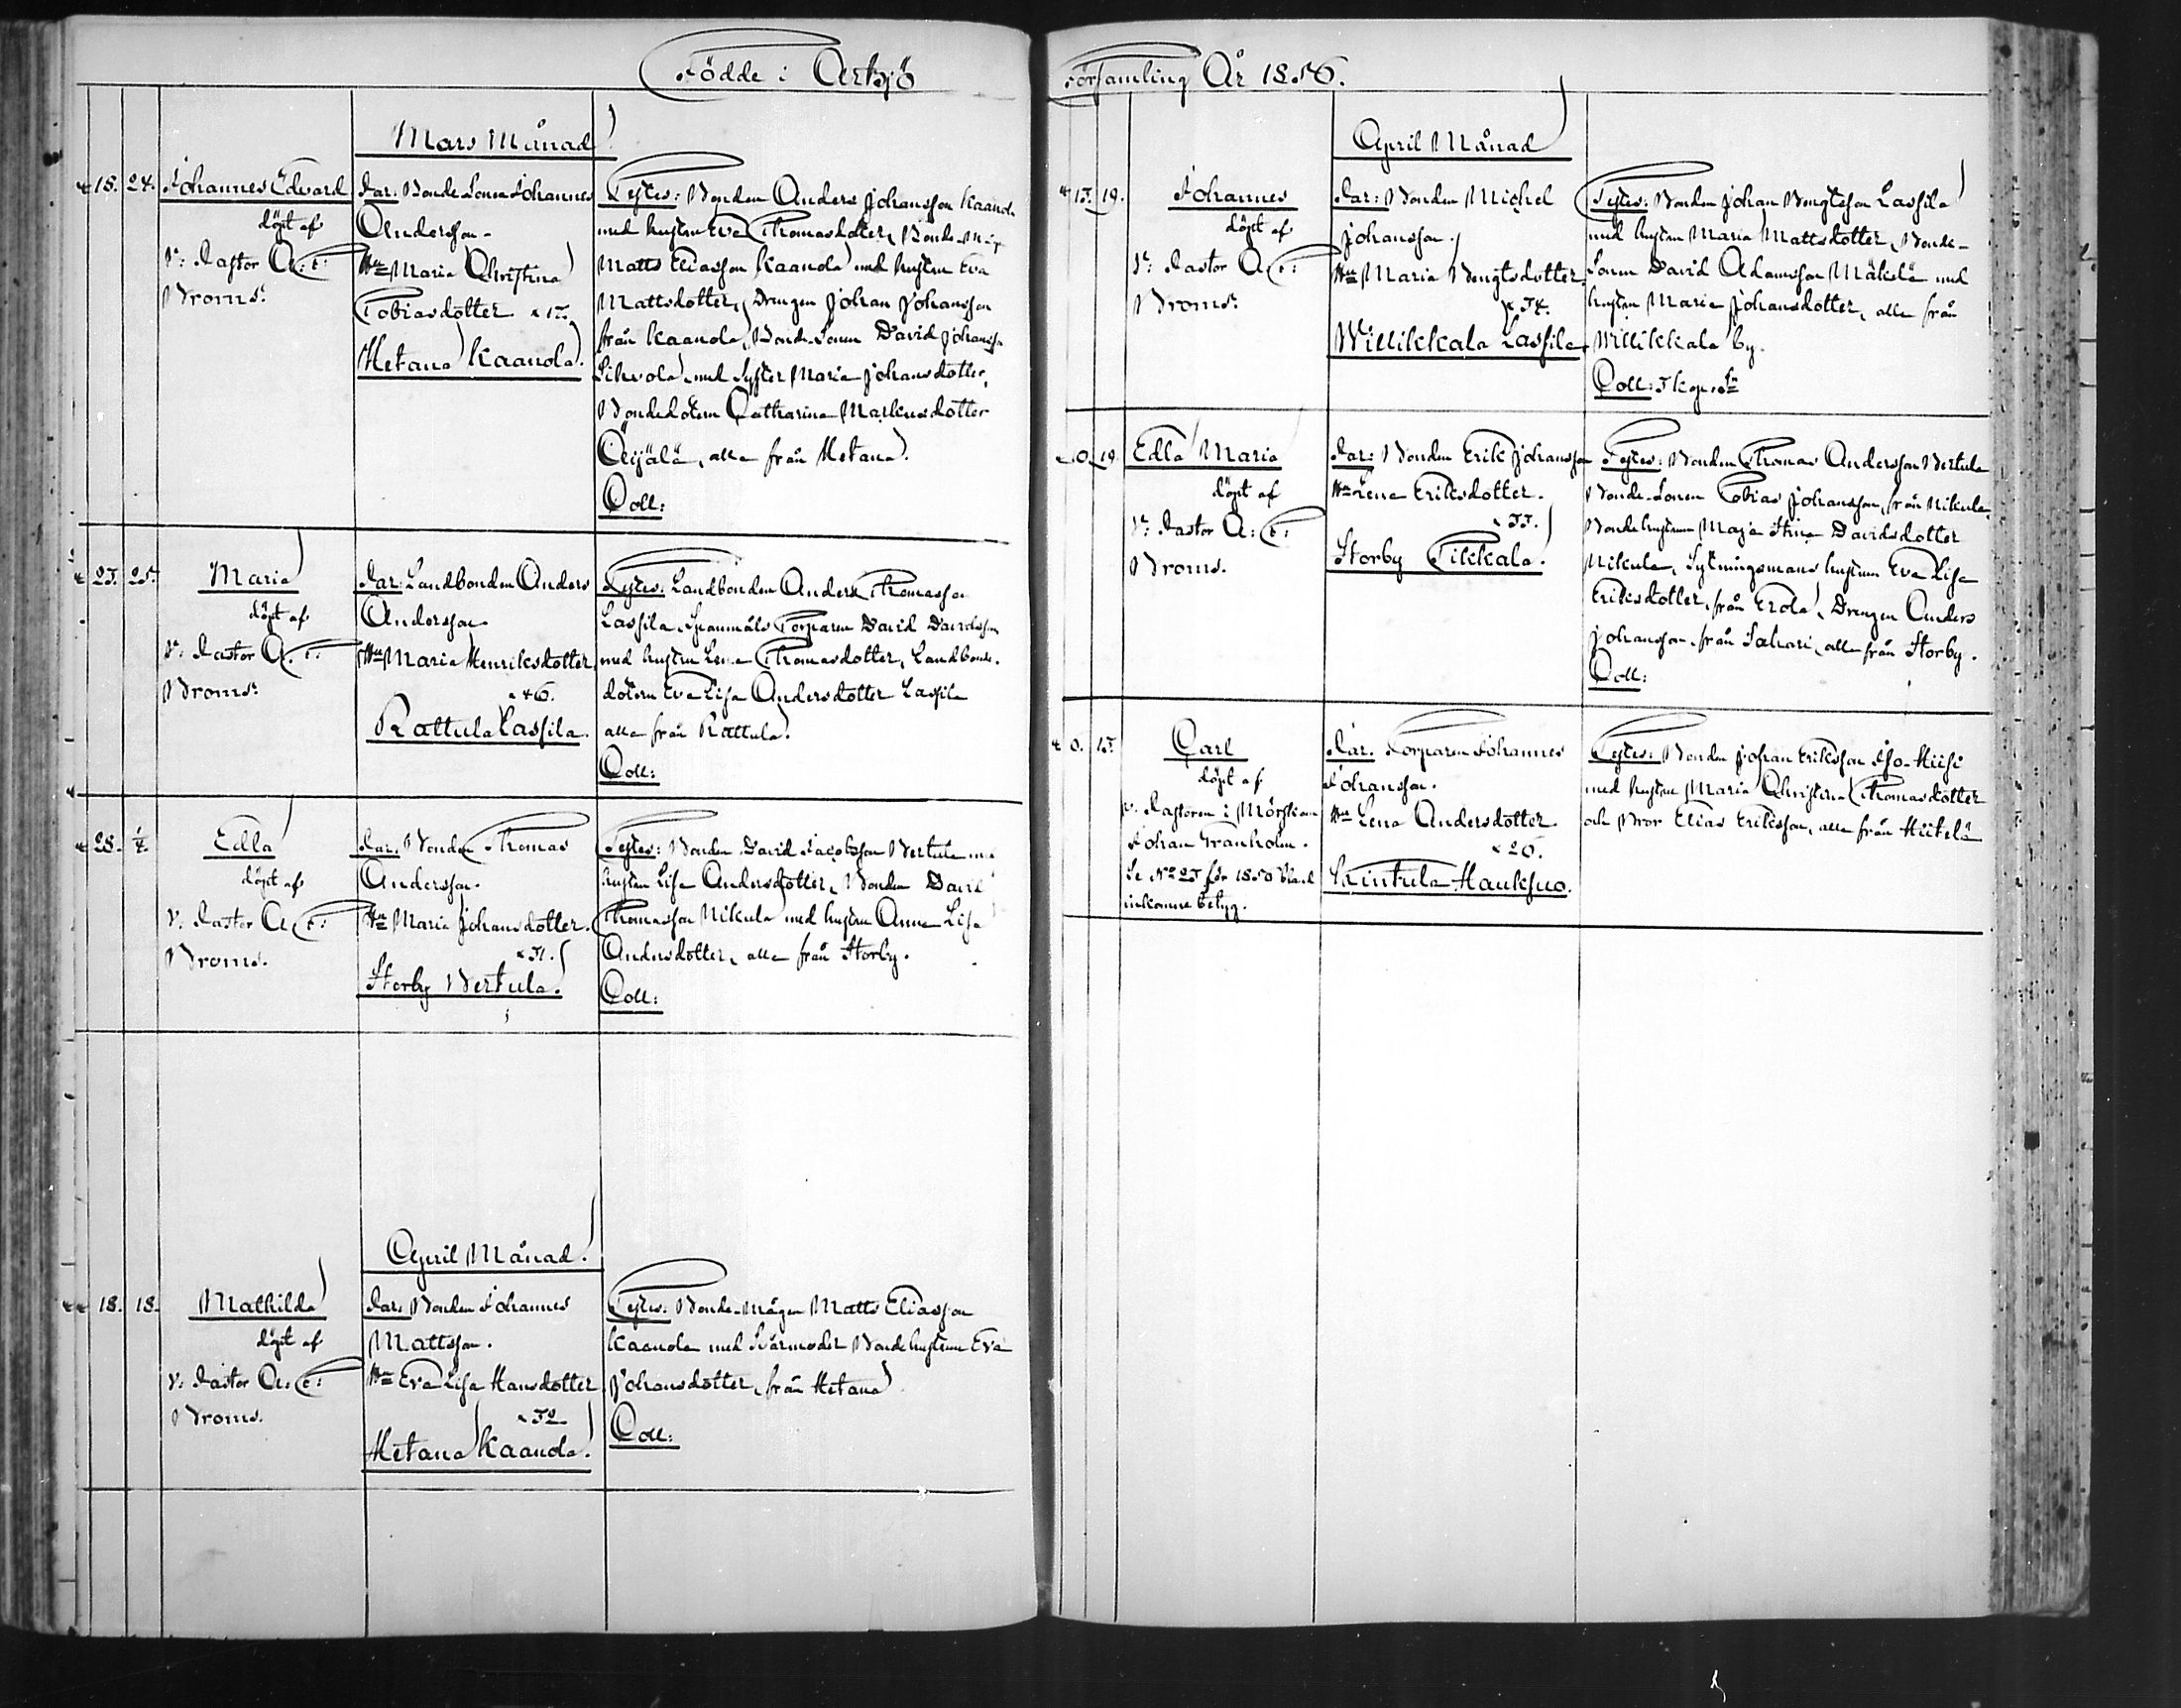 Födde i Artsjö
Mars Månad
18. 24. Johannes Edvard
döpt af
V: Pastor A: E:
Broms.
Far: Bonde Sonen Johannes
Andersson
Hu Maria Christina
Tobiasdotter
Hetana Kaanola.
Testes: Bonden Anders Johansson Kaanola
med hustru Eva Thomasdotter, Bonde-Måg
Matts Eliasson Kaanola med hustru Eva
Mattsdotter, Drengen Johan Johansson
från Kaanola, Bonde-Sonen David Johansson
Sikvola med Syster Maria Johansdotter,
Bondedotern Catharina Markusdotter
Äijälä, alla från Hetana.
Coll:
23. 25. Maria
döpt af
V: Pastor A: E:
Broms:
Far: Landbonden Anders
Andersson
Hu Maria Henriksdotter
46.
Rattula Lassila.
Testes: Landbonden Anders Thomasson
Lassila, Spanmåls Torparen David Davidsson
med hustru Lena Thomasdotter, Landbonde-
dotern Eva Lisa Andersdotter Lassila
alla från Rattula.
Coll:
28. Edla
döpt af
V: Pastor A: E:
Broms.
Far. Bonden Thomas
Andersson.
Hu Maria Johansdotter.
31.
Storby Bertula.
Testes: Bonden David Jacobsson Bertula med
hustru Lisa Andersdotter, Bonden David
Thomasson Nikula med hustru Anna Lisa
Andersdotter, alla från Storby.
Coll:
April Månad.
18. 18. Mathilda
döpt af
V: Pastor A: E:
Broms.
Far: Bonden Johannes
Mattsson.
Hu Eva Lisa Hansdotter
32
Hetana Kaanola.
Testes: Bonde-Mågen Matts Eliasson
Kaanola med Svärmoder Bondehustrun Eva
Johansdotter, från Hetana
Coll:
Församling År 1856.
April Månad
13. 19. Johannes
döpt af
V: Pastor A: E:
Broms:
Far: Bonden Michel
Johansson.
Hu Maria Bengtsdotter
34.
Willikkala Lassila
Testes: Bonden Johan Bengtsson Lassila
med hustru Maria Mattsdotter, Bonde-
Sonen David Adamsson Mäkelä med
hustru Maria Johansdotter, alla från
Willikkala by.
Coll: 3 kop. sr
19. Edla Maria
döpt af
V: Pastor A: E:
Broms.
Far: Bonden Erik Johansson
Hu Lena Eriksdotter.
33.
Storby Pikkala.
Testes: Bonden Thomas Andersson Bertula
Bonde-Sonen Tobias Johansson, från Nikula,
Bondehustrun Maja Stina Davidsdotter
Nikula, Sytningsmans hustrun Eva Lisa
Eriksdotter, från Erola, Drengen Anders
Johansson från Sahari, alla från Storby.
Coll:
13. Carl
döpt af
v. Pastoren i Mörskom
Johan Granholm.
Se No 23 för 1850 bland
inkomne betyg.
Far. Torparen Johannes
Johansson.
Hu Lena Andersdotter
26.
Kintula Hauksuo.
Testes: Bonden Johan Eriksson Iso-Hiisi
med hustru Maria Christina Thomasdotter
och Bror Elias Eriksson, alla från Hiitelä